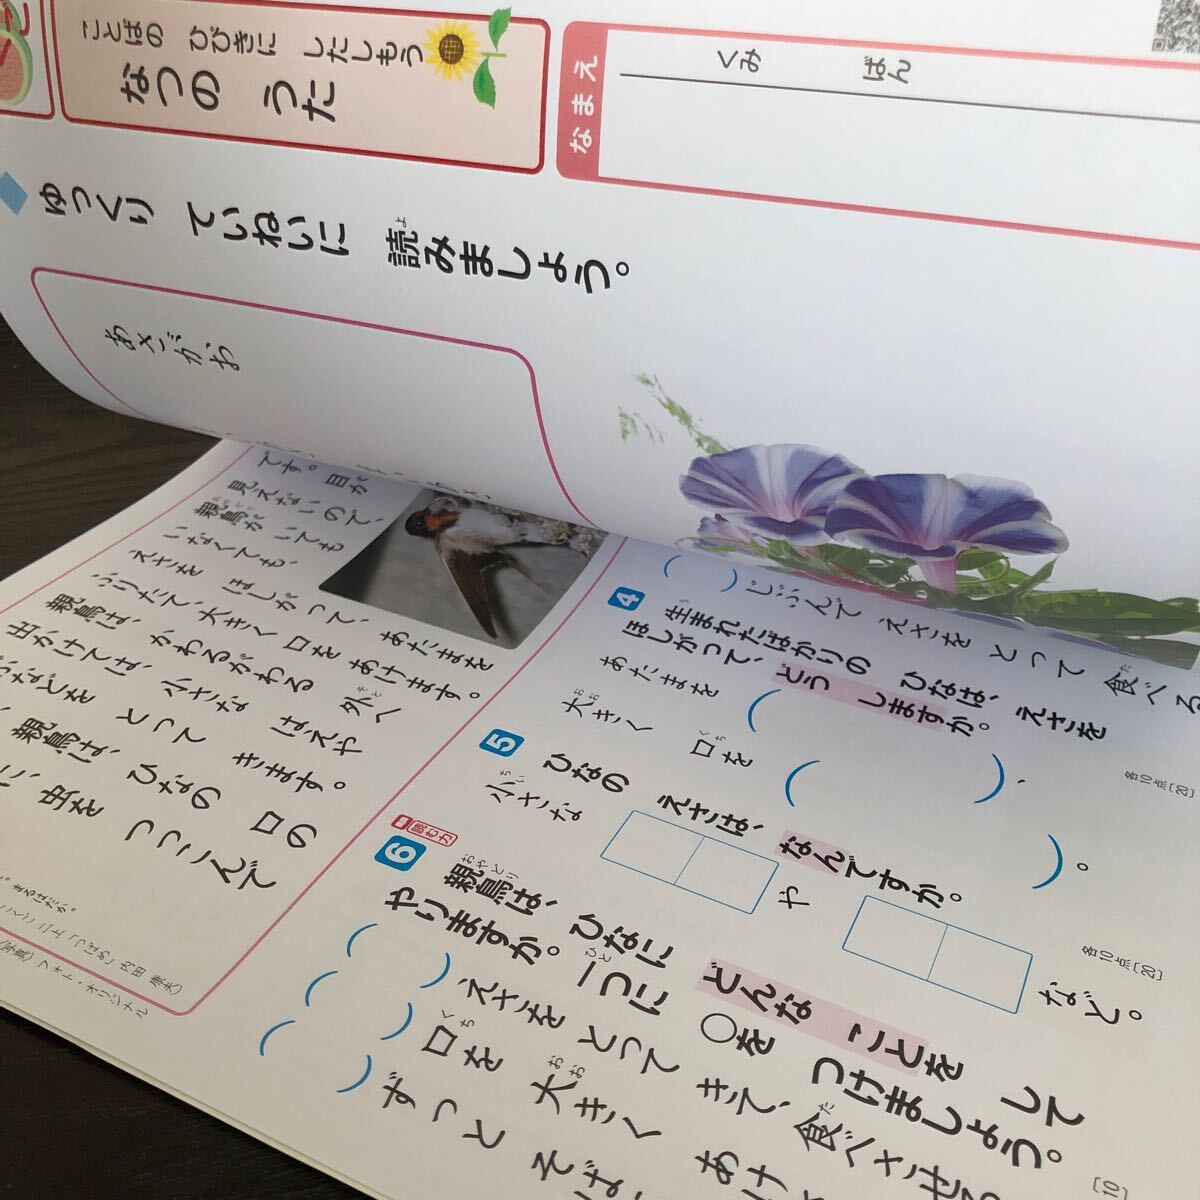 ことばの ひびきに したしもう
なつの うた
なまえ
くみ ばん
ゆっくり ていねいに 読みましょう。
よ
あさがお
です。目が
見えないので、
親鳥が いても
いなくても、
えさを ほしがって、あたまを
ふりたて、大きく 口を あけます。
親鳥は、かわるがわる 外へ
出かけては、小さな はえや
とって きます。
親鳥は、ひなの 口の
虫を つっこんで
まるはだか。
「つばめ」内田 康夫
フォト・オリジナル
( )じぶんで えさを とって 食べる
4 生まれたばかりの ひなは、えさを
ほしがって、どう しますか。
各10点[20]
あたまを ( )、
大きく 口を ( )。
5 ひなの えさは、なんですか。
各10点[20]
小さな や など。
読む力
6 親鳥は、ひなに どんな ことを して
やりますか。一つに ○を つけましょう。
[10]
( )えさを とって きて、食べさせ
( )口を 大きく あけ
( )ずっと そばに